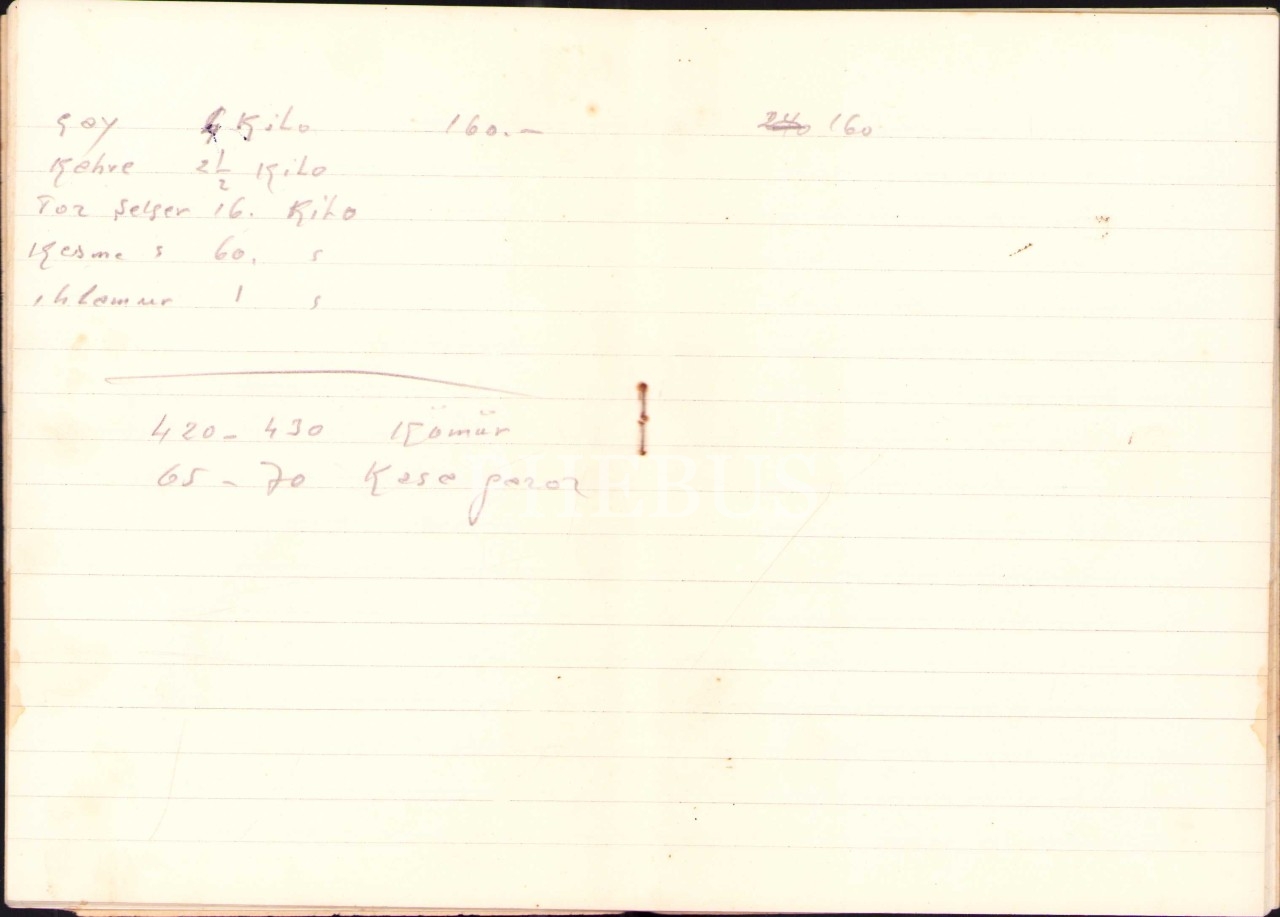 Çay 4 Kilo 160.— 240 160
Kahve 2 1/2 Kilo
Toz Şeker 16. Kilo
Kesme s 60. s
ıhlamur 1 s
420 - 430 Kömür
65 - 70 Kasa gazoz
PHEBUS